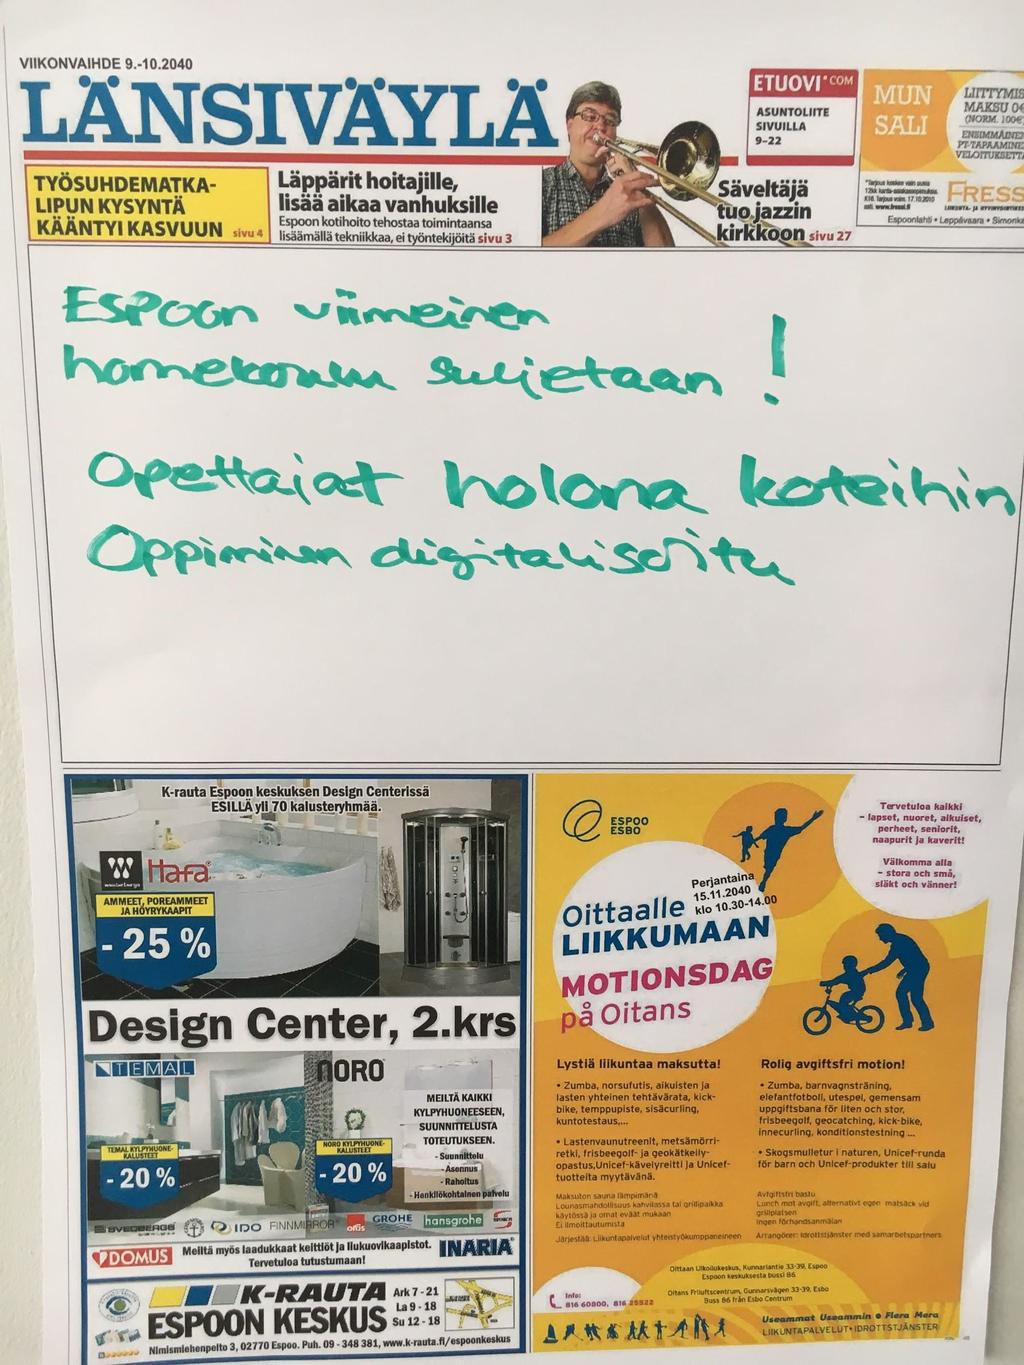 VIIKONVAIHDE 9.-10.2040
LÄNSIVÄYLÄ
TYÖSUHDEMATKA-
LIPUN KYSYNTÄ
KÄÄNTYI KASVUUN sivu 4
Läppärit hoitajille,
lisää aikaa vanhuksille
Espoon kotihoito tehostaa toimintaansa
lisäämällä tekniikkaa, ei työntekijöitä sivu 3
Säveltäjä
tuo jazzin
kirkkoon sivu 27
ETUOVI.COM
ASUNTOLIITE
SIVUILLA
9–22
MUN
SALI
LIITTYMIS
MAKSU 0€
(NORM. 100€
ENSIMMÄINEN
PT-TAPAAMINE
VELOITUKSETTA
FRESS
Espoonlahti • Leppävaara • Simonka
Espoon viimeinen
homekoulu suljetaan!
Opettajat holona koteihin
Oppiminen digitalisoitu
K-rauta Espoon keskuksen Design Centerissä
ESILLÄ yli 70 kalusteryhmää.
Hafa
AMMEET, POREAMMEET
JA HÖYRYKAAPIT
- 25 %
Design Center, 2.krs
TEMAL
NORO
MEILTÄ KAIKKI
KYLPYHUONEESEEN,
SUUNNITTELUSTA
TOTEUTUKSEEN.
- Suunnittelu
- Asennus
- Rahoitus
- Henkilökohtainen palvelu
TEMAL KYLPYHUONE-
KALUSTEET
- 20 %
NORO KYLPYHUONE-
KALUSTEET
- 20 %
SVEDBERGS IDO FINNMIRROR oras GROHE hansgrohe
DOMUS
Meiltä myös laadukkaat keittiöt ja liukuovikaapistot.
Tervetuloa tutustumaan!
INARIA
K-RAUTA
ESPOON KESKUS
Ark 7 - 21
La 9 - 18
Su 12 - 18
Nimismiehenpelto 3, 02770 Espoo. Puh. 09 - 348 381, www.k-rauta.fi/espoonkeskus
ESPOO
ESBO
Tervetuloa kaikki
– lapset, nuoret, aikuiset,
perheet, seniorit,
naapurit ja kaverit!
Välkomma alla
– stora och små,
släkt och vänner!
Perjantaina
15.11.2040
klo 10.30-14.00
Oittaalle
LIIKKUMAAN
MOTIONSDAG
på Oitans
Lystiä liikuntaa maksutta!
• Zumba, norsufutis, aikuisten ja
lasten yhteinen tehtävärata, kick-
bike, temppupiste, sisäcurling,
kuntotestaus,...
• Lastenvaunutreenit, metsämörri-
retki, frisbeegolf- ja geokätkeily-
opastus,Unicef-kävelyreitti ja Unicef-
tuotteita myytävänä.
Maksuton sauna lämpimänä
Lounasmahdollisuus kahvilassa tai grillipaikka
käytössä ja omat eväät mukaan
Ei ilmoittautumista
Järjestää: Liikuntapalvelut yhteistyökumppaneineen
Rolig avgiftsfri motion!
• Zumba, barnvagnsträning,
elefantfotboll, utespel, gemensam
uppgiftsbana för liten och stor,
frisbeegolf, geocatching, kick-bike,
innecurling, konditionstestning ...
• Skogsmulletur i naturen, Unicef-runda
för barn och Unicef-produkter till salu
Avgiftsfri bastu
Lunch mot avgift, alternativt egen matsäck vid
grillplatsen
Ingen förhandsanmälan
Arrangörer: Idrottstjänster med samarbetspartners
Oittaan Ulkoilukeskus, Kunnarlantie 33-39, Espoo
Espoon keskuksesta bussi 86
Oitans Friluftscentrum, Gunnarsvägen 33-39, Esbo
Buss 86 från Esbo Centrum
Info:
816 60800, 816 25522
Useammat Useammin • Flera Mera
LIIKUNTAPALVELUT • IDROTTSTJÄNSTER